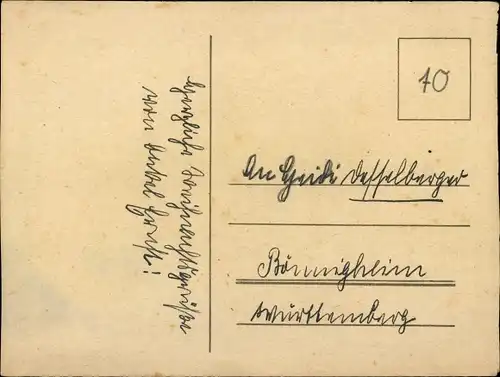 Herzliche Weihnachtsgrüsse
von Onkel Ernst!
10
An Heidi Desselberger
Bönnigheim
Württemberg